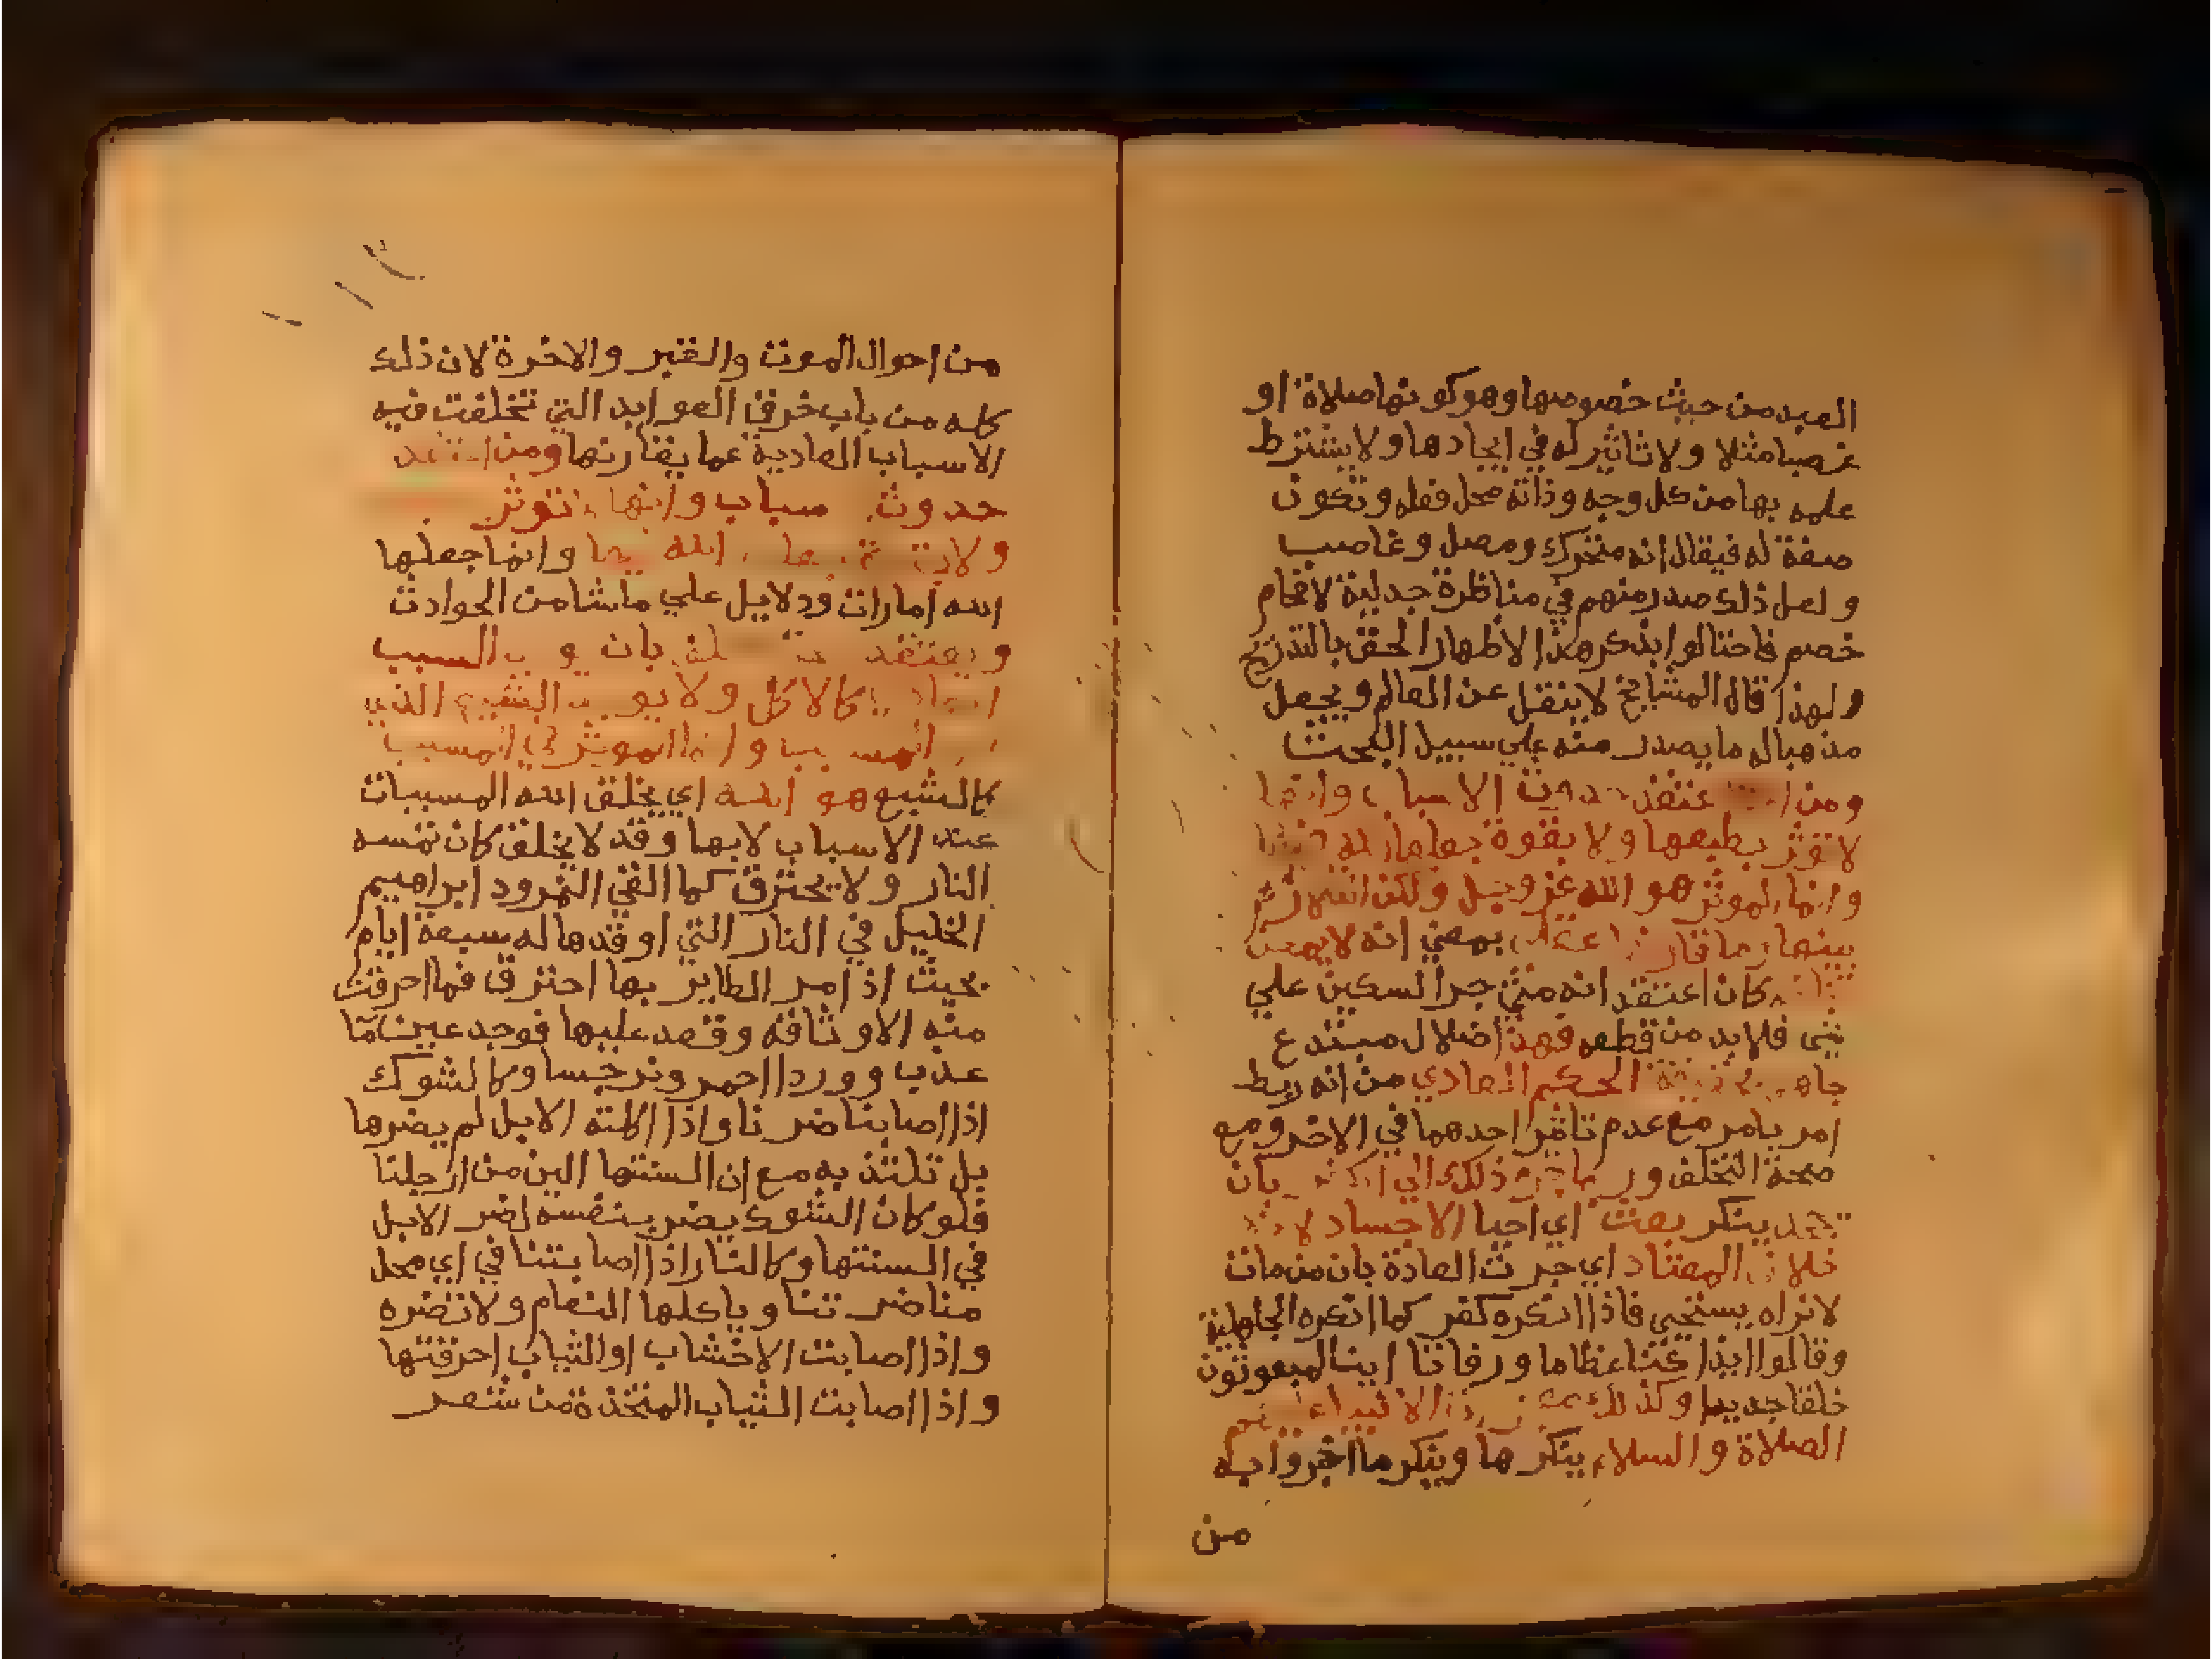 العبد من حيث خصوصها وهو كونها صلاة او
غصبا مثلا ولا تاثير له في ايجادها ولا يشترط
علمه بها من كل وجه وذاته محل فعله وتكون
صفة له فيقال انه متحرك ومصل وغاصب
ولعل ذلك صدر منهم في مناظرة جدلية لافحام
خصم فاحتالوا بذكر هذا لاظهار الحق بالتدريج
ولهذا قال المشايخ لا ينقل عن العالم ويجعل
مذهبا له ما يصدر منه علي سبيل البحث
ومن اعتقد حدوث الاسباب وانها
لا توثر بطبعها ولا بقوة جعلها الله فيها
وانما الموثر هو الله عز وجل ولكن التلازم
بينها وما قارنها عقلي بمعني انه لا يمكن
كان اعتقد انه متي جر السكين علي
شي فلا بد من قطعه فهذا ضلال مبتدع
جاهل بحقيقة الحكم العادي من انه ربط
امر بامر مع عدم تاثير احدهما في الاخر ومع
صحة التخلف وربما جره ذلك الي الكفر بان
ينكر بعث اي احيا الاجساد لانه
خلاف المعتاد اي جرت العادة بان من مات
لا نراه يستحيي فاذا انكره كفر كما انكره الجاهلية
وقالوا ايذا كنا عظاما ورفاتا اينا لمبعوثون
خلقا جديدا وكذلك الانبيا عليهم
الصلاة والسلام ينكرها وينكر ما اخبروا به
من
من احوال الموت والقبر والاخرة لان ذلك
كله من باب خرق العوايد التي تخلفت فيه
الاسباب العادية عما يقارنها ومن اعتقد
حدوث سباب وانها توثر
ولا الله وانما جعلها
الله امارات ودلايل علي ما شا من الحوادث
ويعتقد بان السبب
كالاكل ولا الشبع الذي
وانما الموثر في المسبب
كالشبع هو الله اي يخلق الله المسببات
عند الاسباب لا بها وقد لا يخلق كان تمسه
النار ولا يحترق كما القي النمرود ابراهيم
الخليل في النار التي اوقدها له سبعة ايام
بحيث اذا مر الطاير بها احترق فما احرقت
منه الا وثاقه وقعد عليها فوجد عين ما
عذب ووردا احمر ونرجسا وكالشوك
اذا اصابنا ضرنا واذا اكلته الابل لم يضرها
بل تلتذ به مع ان السنتها الين من ارجلنا
فلو كان الشوك يضر بنفسه لضر الابل
في السنتها وكالنار اذا اصابتنا في اي محل
منا ضرتنا وياكلها النعام ولا تضره
واذا اصابت الاخشاب او الثياب احرقتها
واذا اصابت الثياب المتخذة من شعر